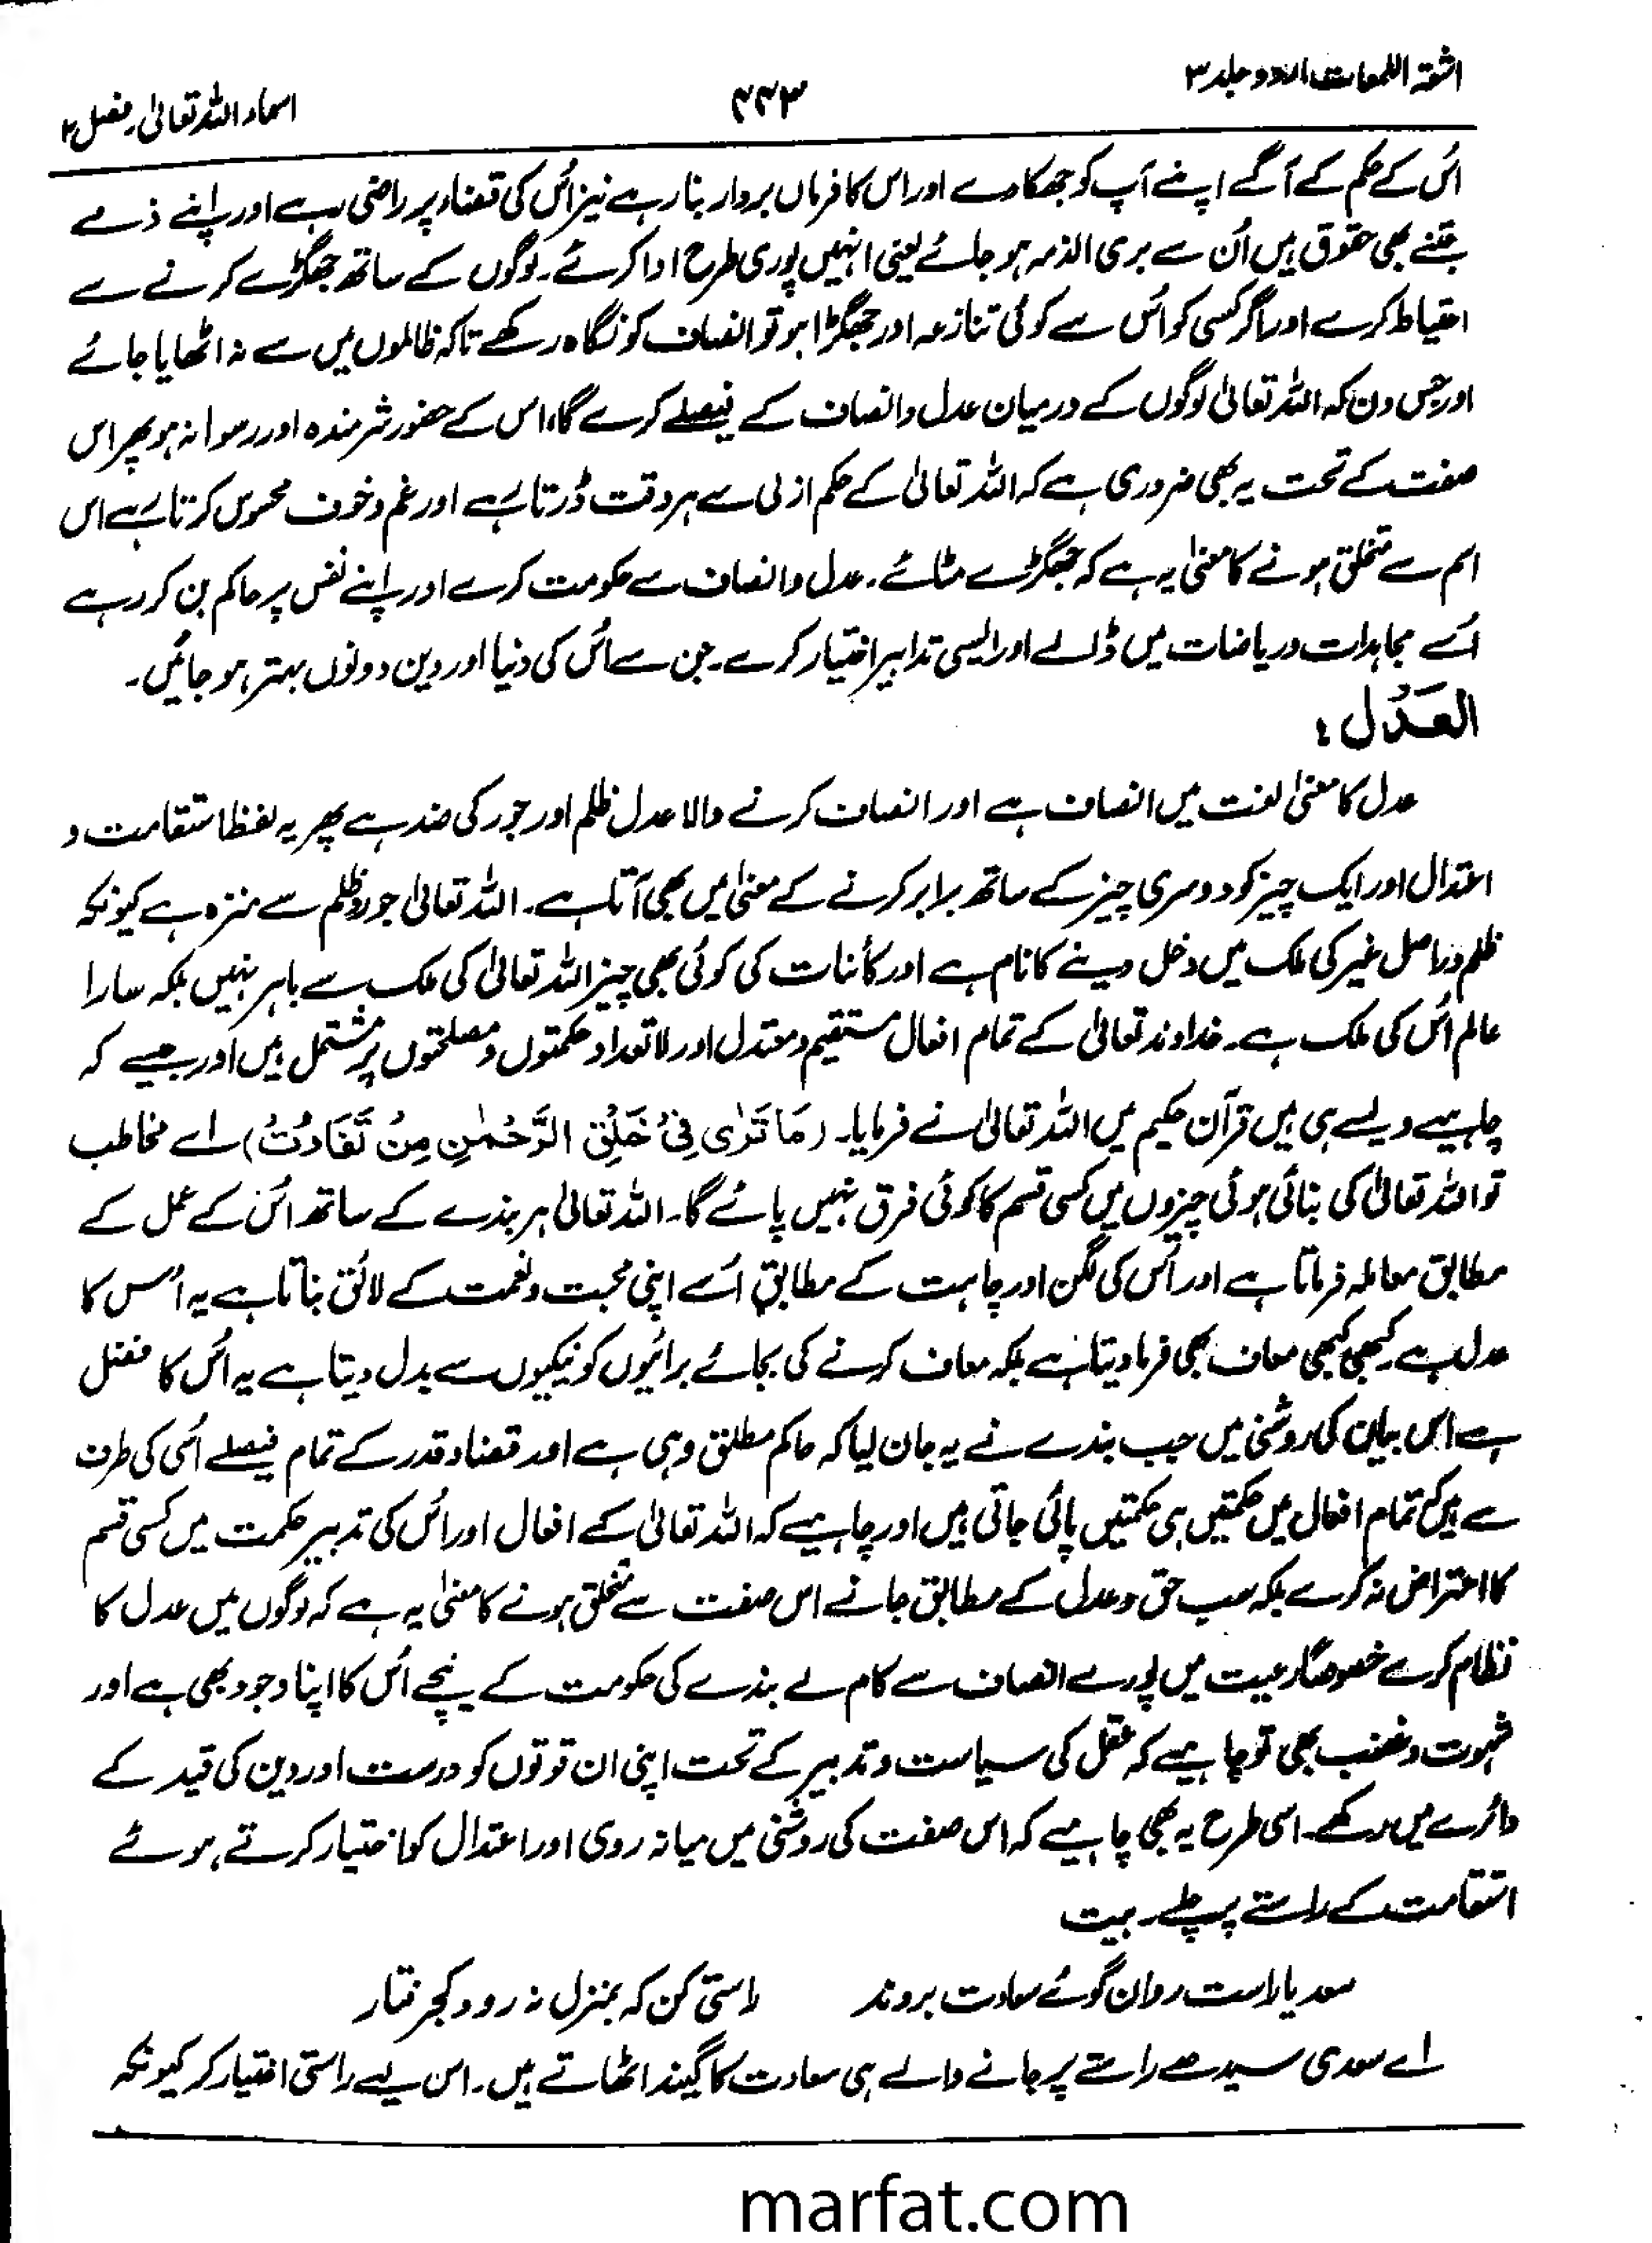 اشعۃ اللمعات اردو جلد ۳
۲۲۳
اسماء اللہ تعالیٰ، فصل ۲
اُس کے حکم کے آگے اپنے آپ کو جھکا دے اور اس کا فرماں بردار بنا رہے نیز اُس کی قضاء پر راضی رہے اور اپنے ذمے
جتنے بھی حقوق ہیں اُن سے بری الذمہ ہو جائے یعنی انہیں پوری طرح ادا کرے۔ لوگوں کے ساتھ جھگڑے کرنے سے
احتیاط کرے اور اگر کسی کو اُس سے کوئی تنازعہ اور جھگڑا ہو تو انصاف کو نگاہ رکھے تاکہ ظالموں میں سے نہ اٹھایا جائے
اور جس دن کہ اللہ تعالیٰ لوگوں کے درمیان عدل و انصاف کے فیصلے کرے گا، اس کے حضور شرمندہ اور رسوا نہ ہو پھر اس
صفت کے تحت یہ بھی ضروری ہے کہ اللہ تعالیٰ کے حکم ازلی سے ہر وقت ڈرتا رہے اور غم و خوف محسوس کرتا رہے اس
اسم سے تخلق ہونے کا معنیٰ یہ ہے کہ جھگڑے مٹائے۔ عدل و انصاف سے حکومت کرے اور اپنے نفس پر حاکم بن کر رہے
اُسے مجاہدات و ریاضات میں ڈالے اور ایسی تدابیر اختیار کرے۔ جن سے اُس کی دنیا اور دین دونوں بہتر ہو جائیں۔
العَدْل :
عدل کا معنیٰ لغت میں انصاف ہے اور انصاف کرنے والا عدل ظلم اور جور کی ضد ہے پھر یہ لفظ استقامت و
اعتدال اور ایک چیز کو دوسری چیز کے ساتھ برابر کرنے کے معنیٰ میں بھی آتا ہے۔ اللہ تعالیٰ جور و ظلم سے منزہ ہے کیونکہ
ظلم دراصل غیر کی ملک میں دخل دینے کا نام ہے اور کائنات کی کوئی بھی چیز اللہ تعالیٰ کی ملک سے باہر نہیں بلکہ سارا
عالم اُس کی ملک ہے۔ خداوند تعالیٰ کے تمام افعال مستقیم و معتدل اور لا تعداد حکمتوں و مصلحتوں پر مشتمل ہیں اور جیسے کہ
چاہیے ویسے ہی ہیں قرآن حکیم میں اللہ تعالیٰ نے فرمایا۔ (مَا تَرٰی فِیْ خَلْقِ الرَّحْمٰنِ مِنْ تَفَاوُتْ) اے مخاطب
تو اللہ تعالیٰ کی بنائی ہوئی چیزوں میں کسی قسم کا کوئی فرق نہیں پائے گا۔ اللہ تعالیٰ ہر بندے کے ساتھ اُس کے عمل کے
مطابق معاملہ فرماتا ہے اور اُس کی لگن اور چاہت کے مطابق اُسے اپنی محبت و نعمت کے لائق بناتا ہے یہ اُس کا
عدل ہے۔ کبھی کبھی معاف بھی فرما دیتا ہے بلکہ معاف کرنے کی بجائے برائیوں کو نیکیوں سے بدل دیتا ہے یہ اُس کا فضل
ہے اس بیان کی روشنی میں جب بندے نے یہ جان لیا کہ حاکم مطلق وہی ہے اور قضاء و قدر کے تمام فیصلے اُسی کی طرف
سے ہیں تمام افعال میں حکمتیں ہی حکمتیں پائی جاتی ہیں اور چاہیے کہ اللہ تعالیٰ کے افعال اور اُس کی تدبیر حکمت میں کسی قسم
کا اعتراض نہ کرے بلکہ سب حق و عدل کے مطابق جانے اس صفت سے تخلق ہونے کا معنیٰ یہ ہے کہ لوگوں میں عدل کا
نظام کرے خصوصاً رعیت میں پورے انصاف سے کام لے بندے کی حکومت کے نیچے اُس کا اپنا وجود بھی ہے اور
شہوت و غضب بھی تو چاہیے کہ عقل کی سیاست و تدبیر کے تحت اپنی ان قوتوں کو درست اور دین کی قید کے
دائرے میں رکھے۔ اسی طرح یہ بھی چاہیے کہ اس صفت کی روشنی میں میانہ روی اور اعتدال کو اختیار کرتے ہوئے
استقامت کے راستے پر چلے۔ بیت
سعدیا راست روان گوئے سعادت بروند    راستی کن کہ بمنزل نہ رود کجرفتار
اے سعدی سیدھے راستے پر جانے والے ہی سعادت کا گیند اٹھاتے ہیں۔ اس لیے راستی اختیار کر کیونکہ
marfat.com